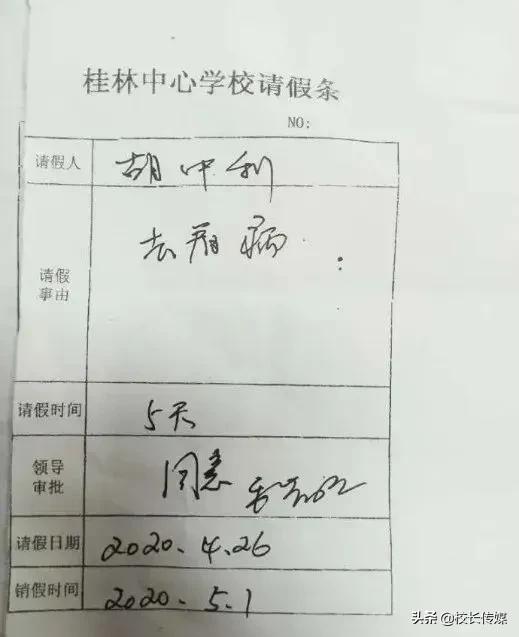 桂林中心学校请假条
NO:
请假人 胡中利
请假
事由
去看病
请假时间 5天
领导
审批
同意
请假日期 2020.4.26
销假时间 2020.5.1
头条 @校长传媒